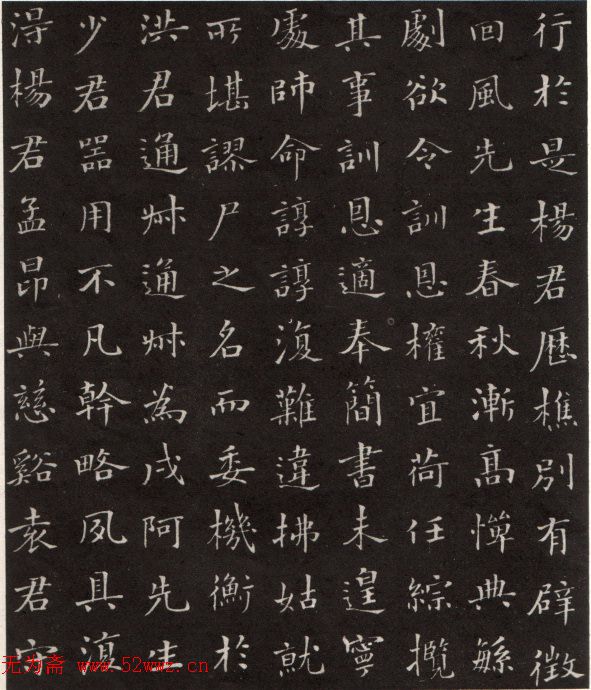 行於是楊君歷樵別有辟徵
回風先生春秋漸高憚典緐
劇欲令訓恩權宜荷任綜攬
其事訓恩適奉簡書未遑寧
處師命諄諄復難違拂姑就
所堪謬尸之名而委機衡於
洪君通艸通艸為戌阿先生
少君器用不凡幹略夙具復
得楊君孟昂與慈谿袁君
无为斋 www.52wwz.cn